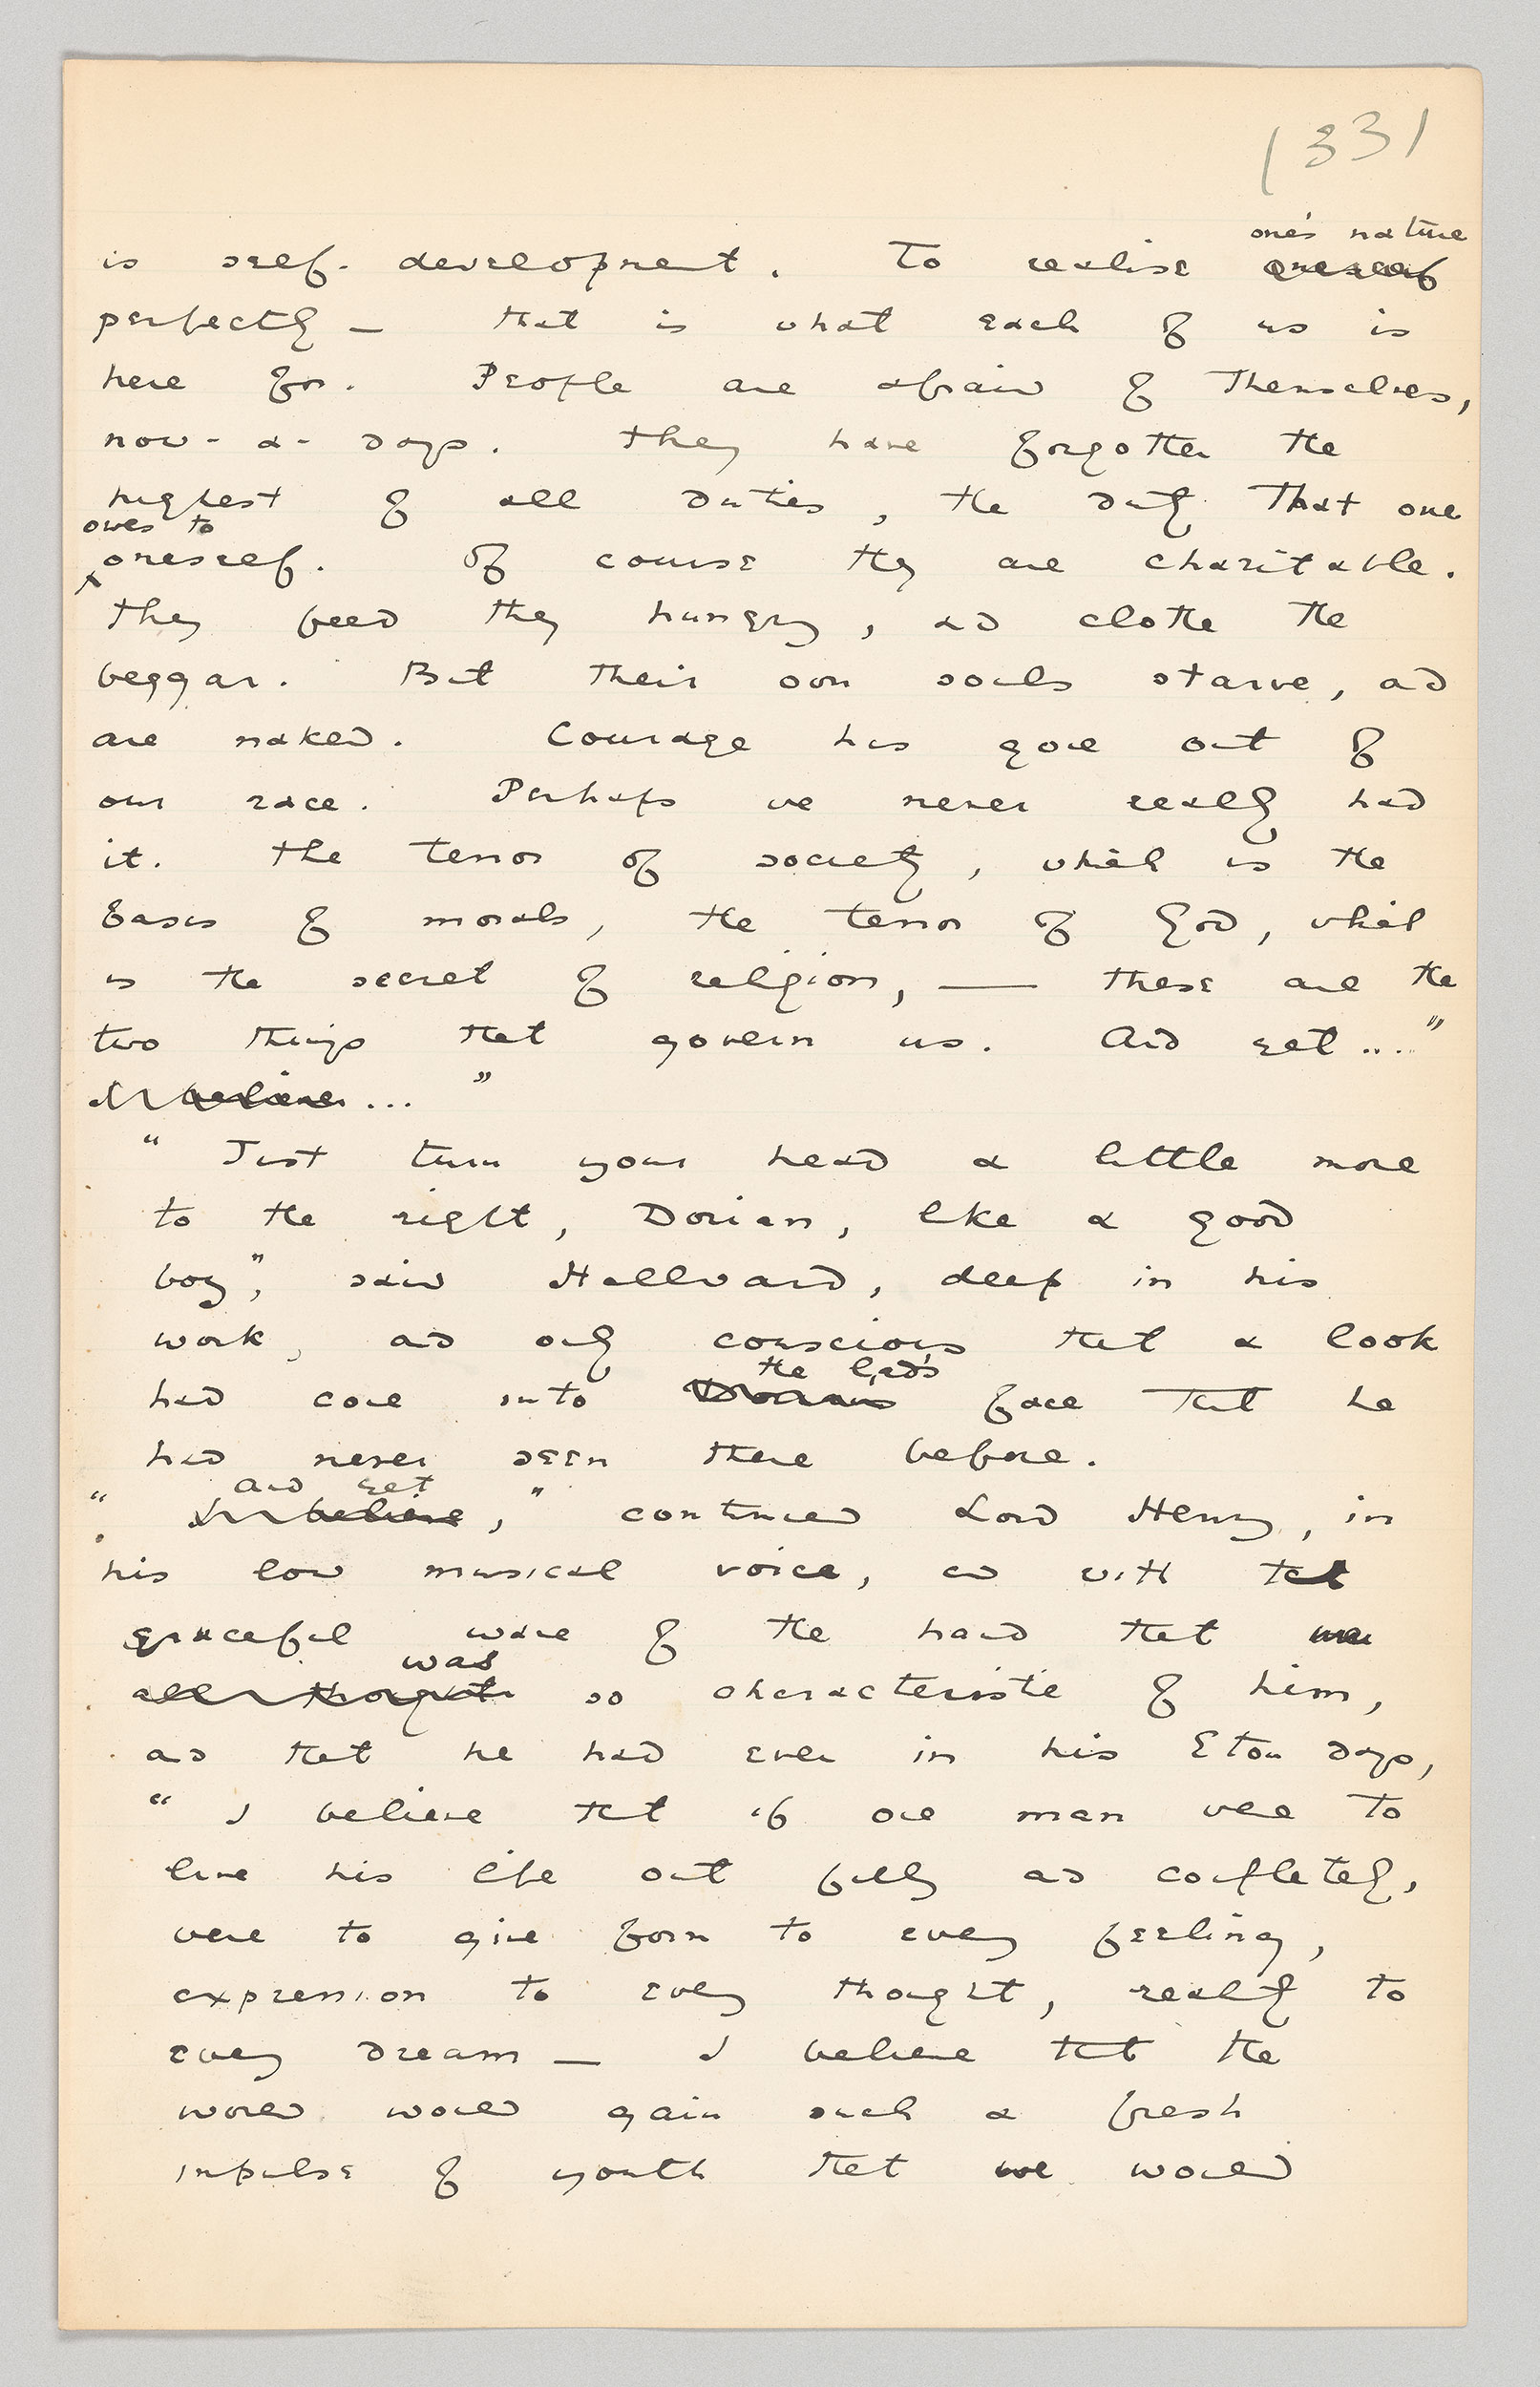 (33)
one's nature
is self-development. To realise oneself
perfectly — that is what each of us is
here for. People are afraid of themselves,
now-a-days. They have forgotten the
highest of all duties, the duty that one
owes to
oneself. Of course they are charitable.
They feed they hungry, and clothe the
beggar. But their own souls starve, and
are naked. Courage has gone out of
our race. Perhaps we never really had
it. The terror of society, which is the
basis of morals, the terror of God, which
is the secret of religion, — these are the
two things that govern us. And yet...."
I believe... "
"Just turn your head a little more
to the right, Dorian, like a good
boy", said Hallward, deep in his
work, and only conscious that a look
the lad's
had come into Dorian's face that he
had never seen there before.
and yet
" I believe," continued Lord Henry, in
his low musical voice, and with that
graceful wave of the hand that
was
all thought so characteristic of him,
and that he had even in his Eton days,
"I believe that if one man were to
live his life out fully and completely,
were to give form to every feeling,
expression to every thought, reality to
every dream — I believe that the
world would gain such a fresh
impulse of youth that we would